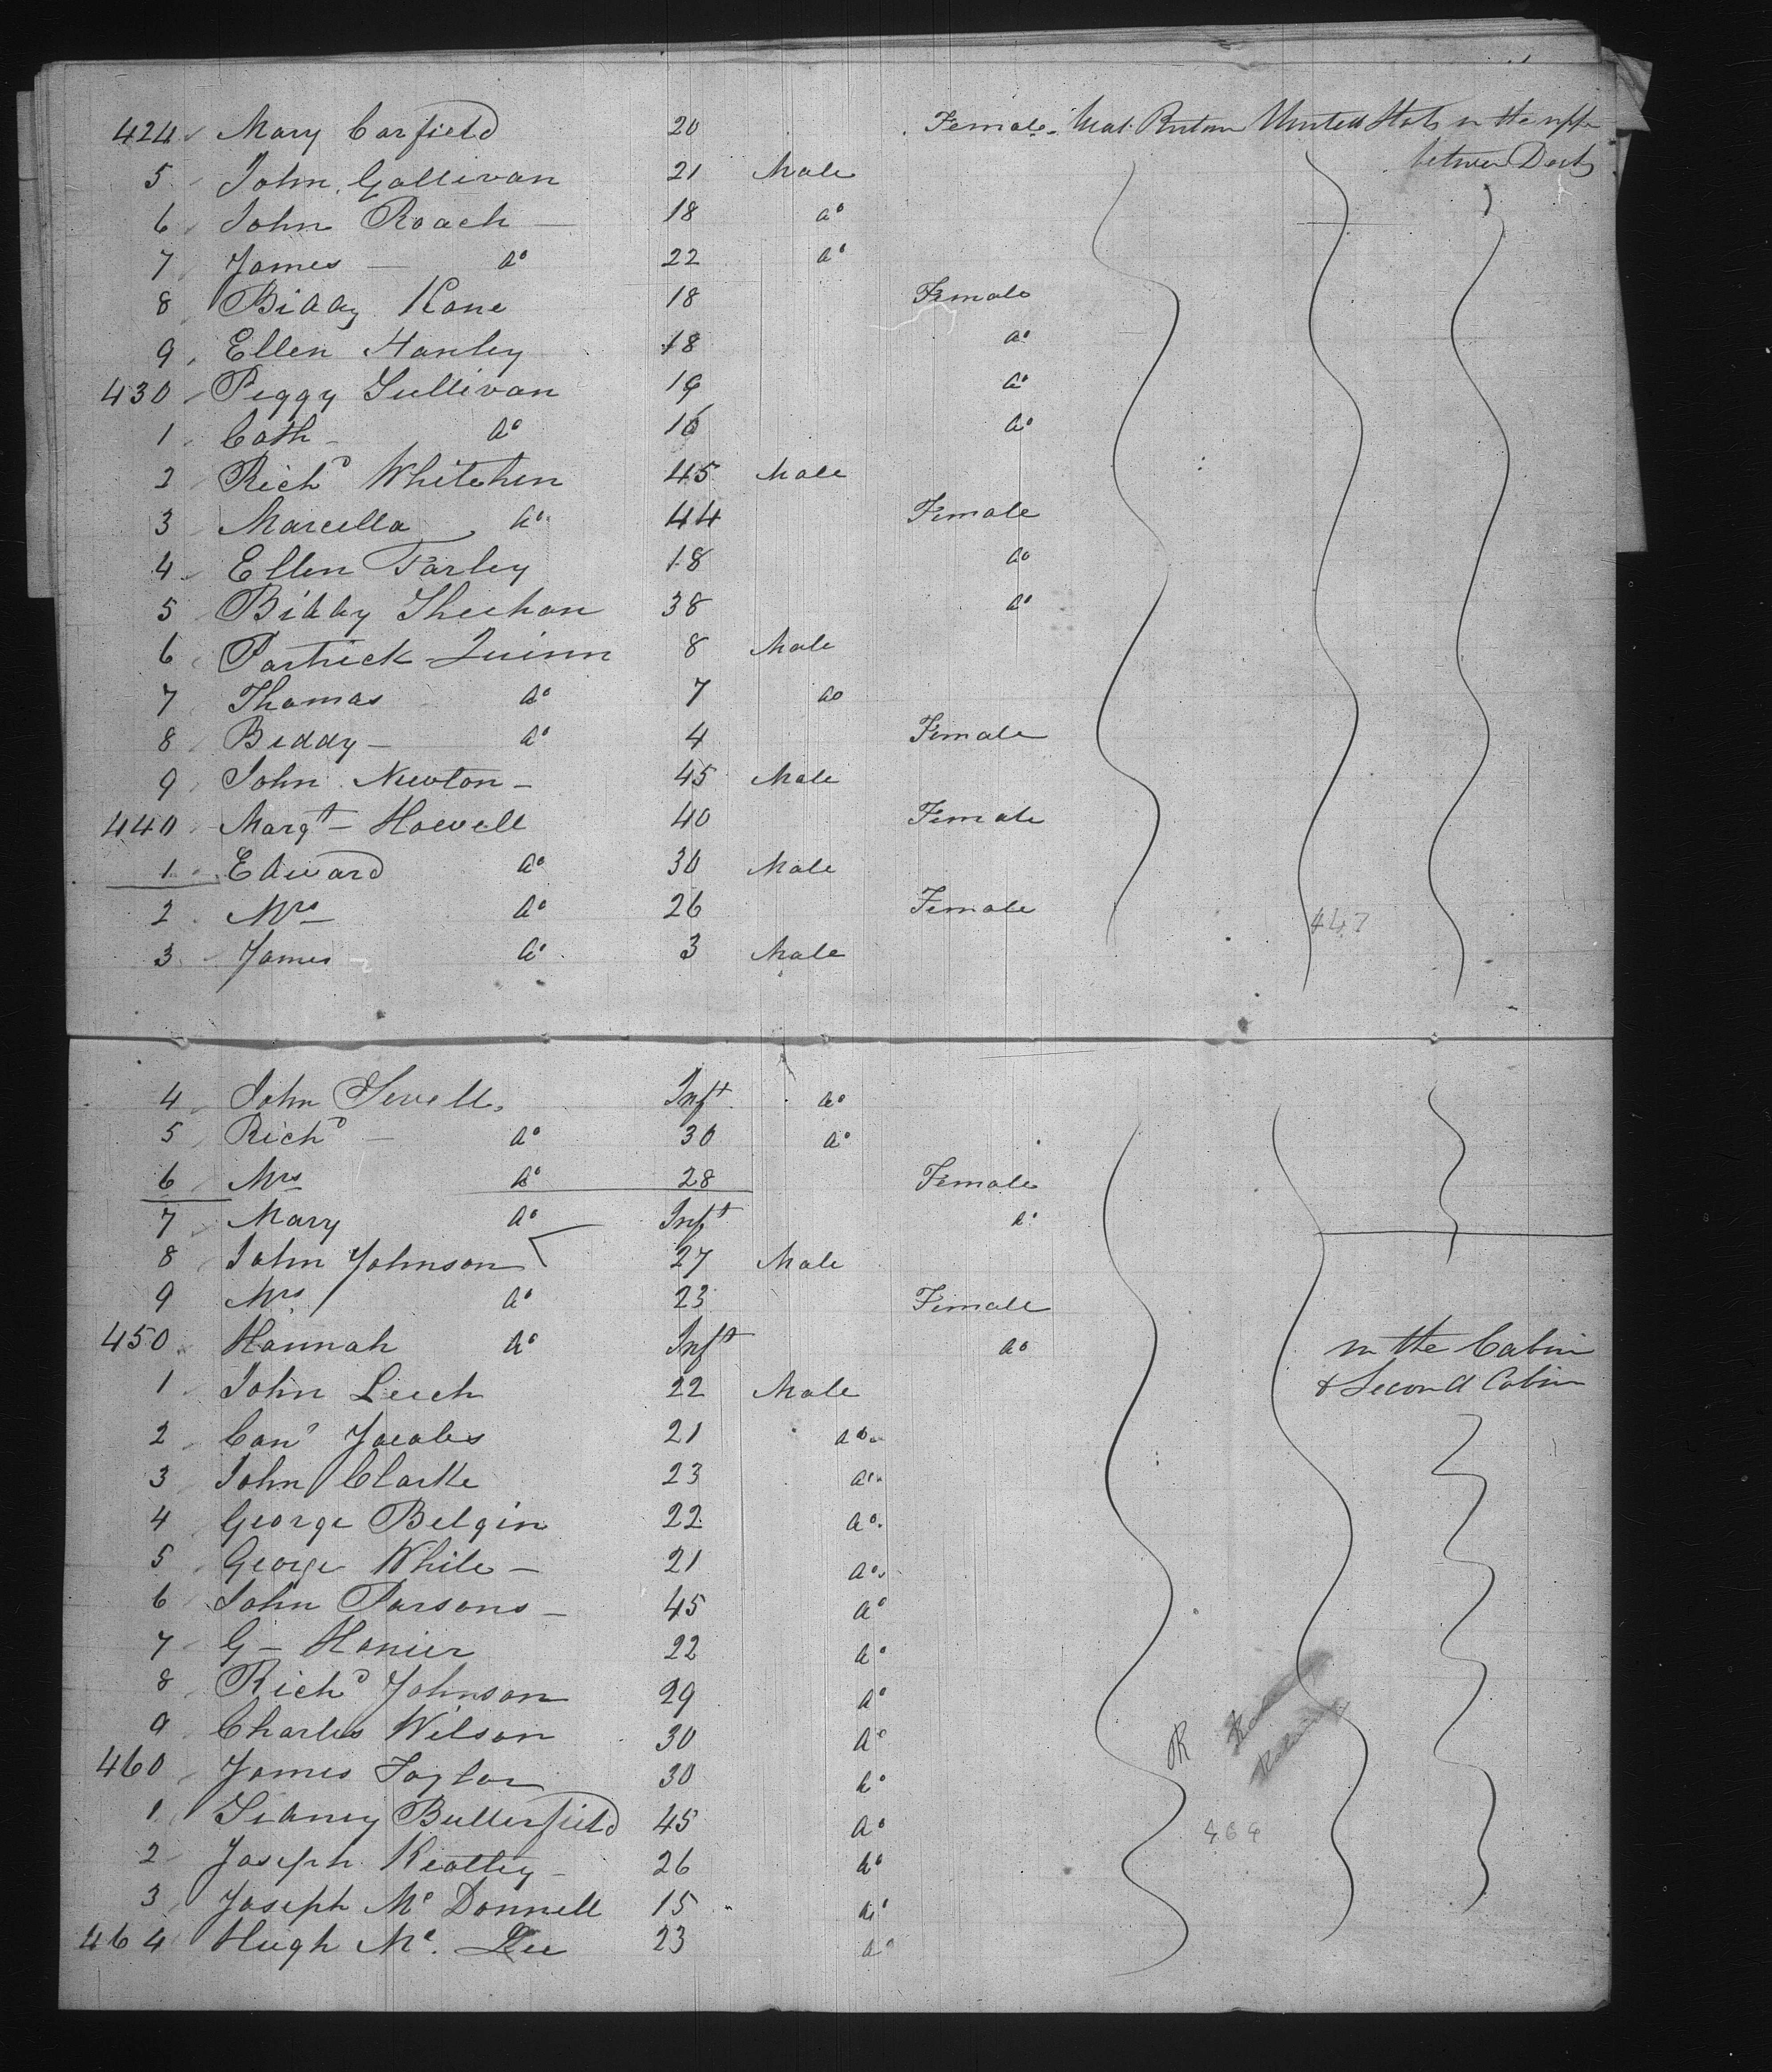 424 Mary Carfield 20 Female Great Britain United States in the upper
between Decks
5 John Gallivan 21 Male
6 John Roach — 18 do
7 James — do 22 do
8 Biddy Kane 18 Female
9 Ellen Hanley 18 do
430 Peggy Sullivan 19 do
1 Cath — do 16 do
2 Richd Whitehen 45 Male
3 Marcella do 44 Female
4 Ellen Farley 18 do
5 Biddy Sheehan 38 do
6 Patrick Quinn 8 Male
7 Thomas do 7 do
8 Biddy — do 4 Female
9 John Newton — 45 Male
440 Margt — Howell 40 Female
1 Edward do 30 Male
2 Mrs do 26 Female
447
3 James — do 3 Male
4 John Sewell Inft do
5 Richd — do 30 do
6 Mrs do 28 Female
7 Mary do Inft do
8 John Johnson 27 Male
9 Mrs do 23 Female
450 Hannah do Inft do in the Cabin
& Second Cabin
1 John Leech 22 Male
2 Jacobs 21 do
3 John Clarke 23 do
4 George Belgin 22 do
5 George White — 21 do
6 John Parsons — 45 do
7 G — Hanier 22 do
8 Richd Johnson 29 do
9 Charles Wilson 30 do
460 James Taylor 30 do
1 Sidney Butterfield 45 do
464
2 Joseph Keatley — 26 do
3 Joseph Mc Donnell 15 do
464 Hugh Mc. Lee 23 do